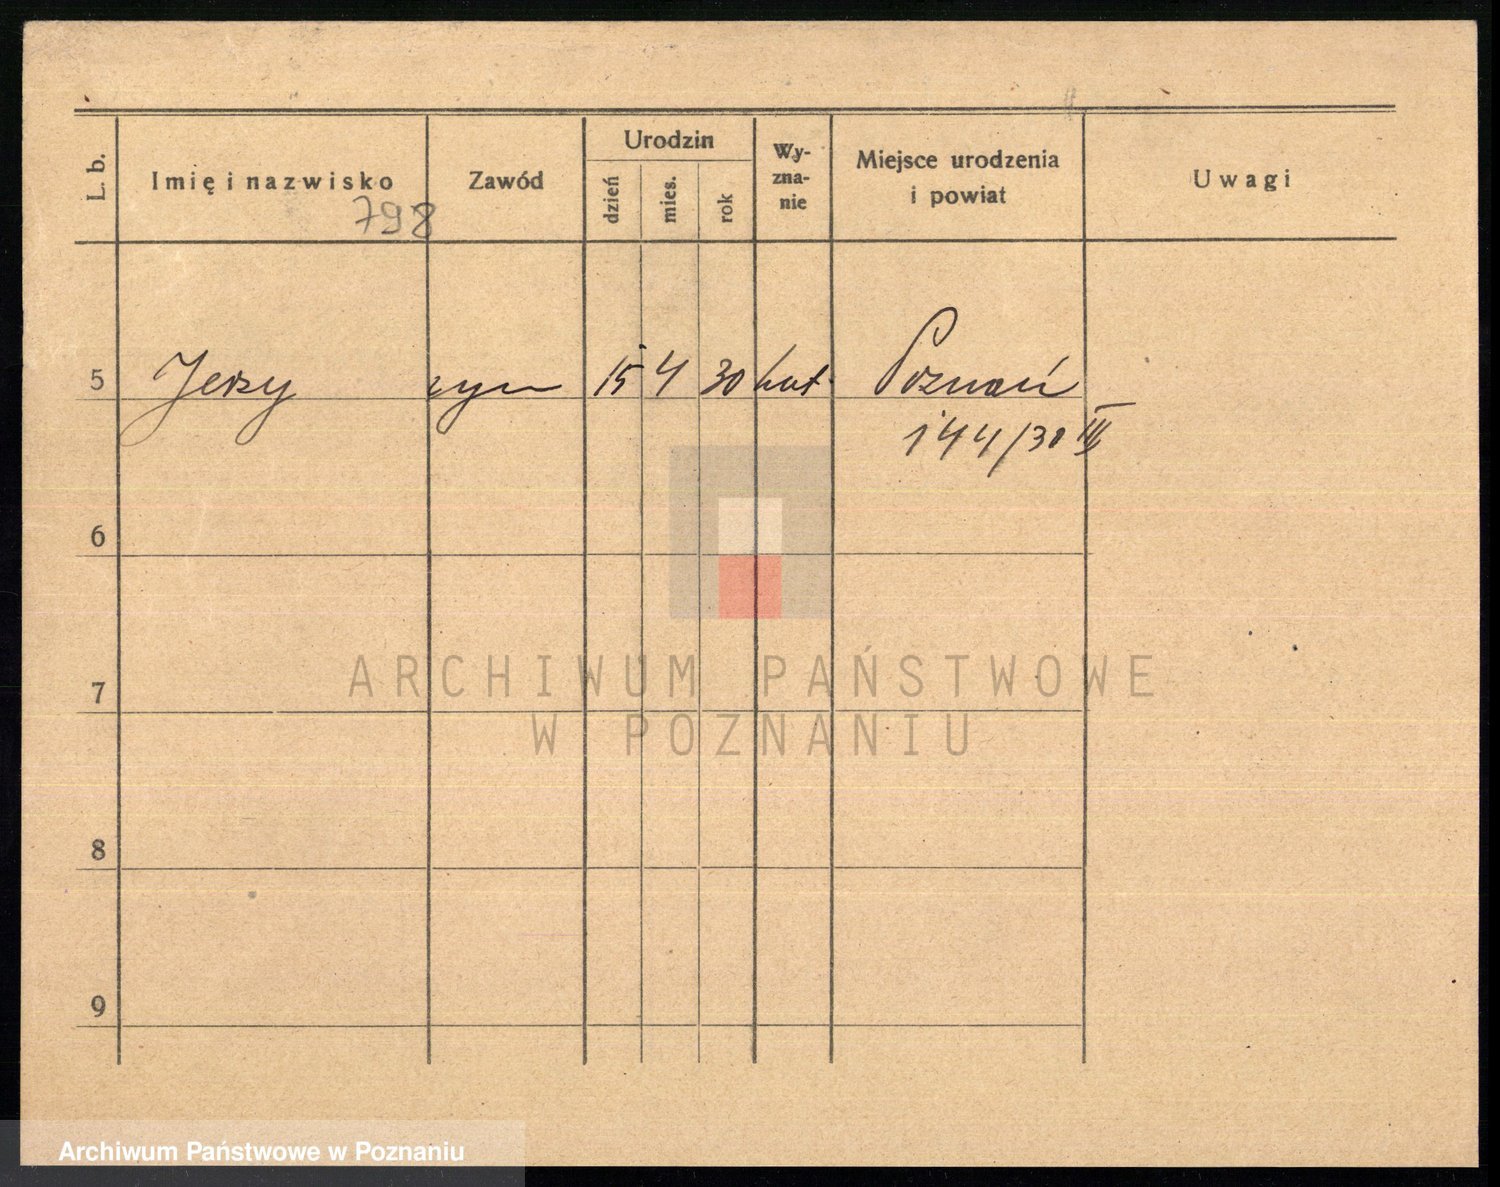 L. b. Imię i nazwisko Zawód Urodzin dzień mies. rok Wy-zna-nie Miejsce urodzenia i powiat Uwagi
798
5 Jerzy syn 15 4 30 kat. Poznań
144/30 III
6
7
ARCHIWUM PAŃSTWOWE
W POZNANIU
8
9
Archiwum Państwowe w Poznaniu